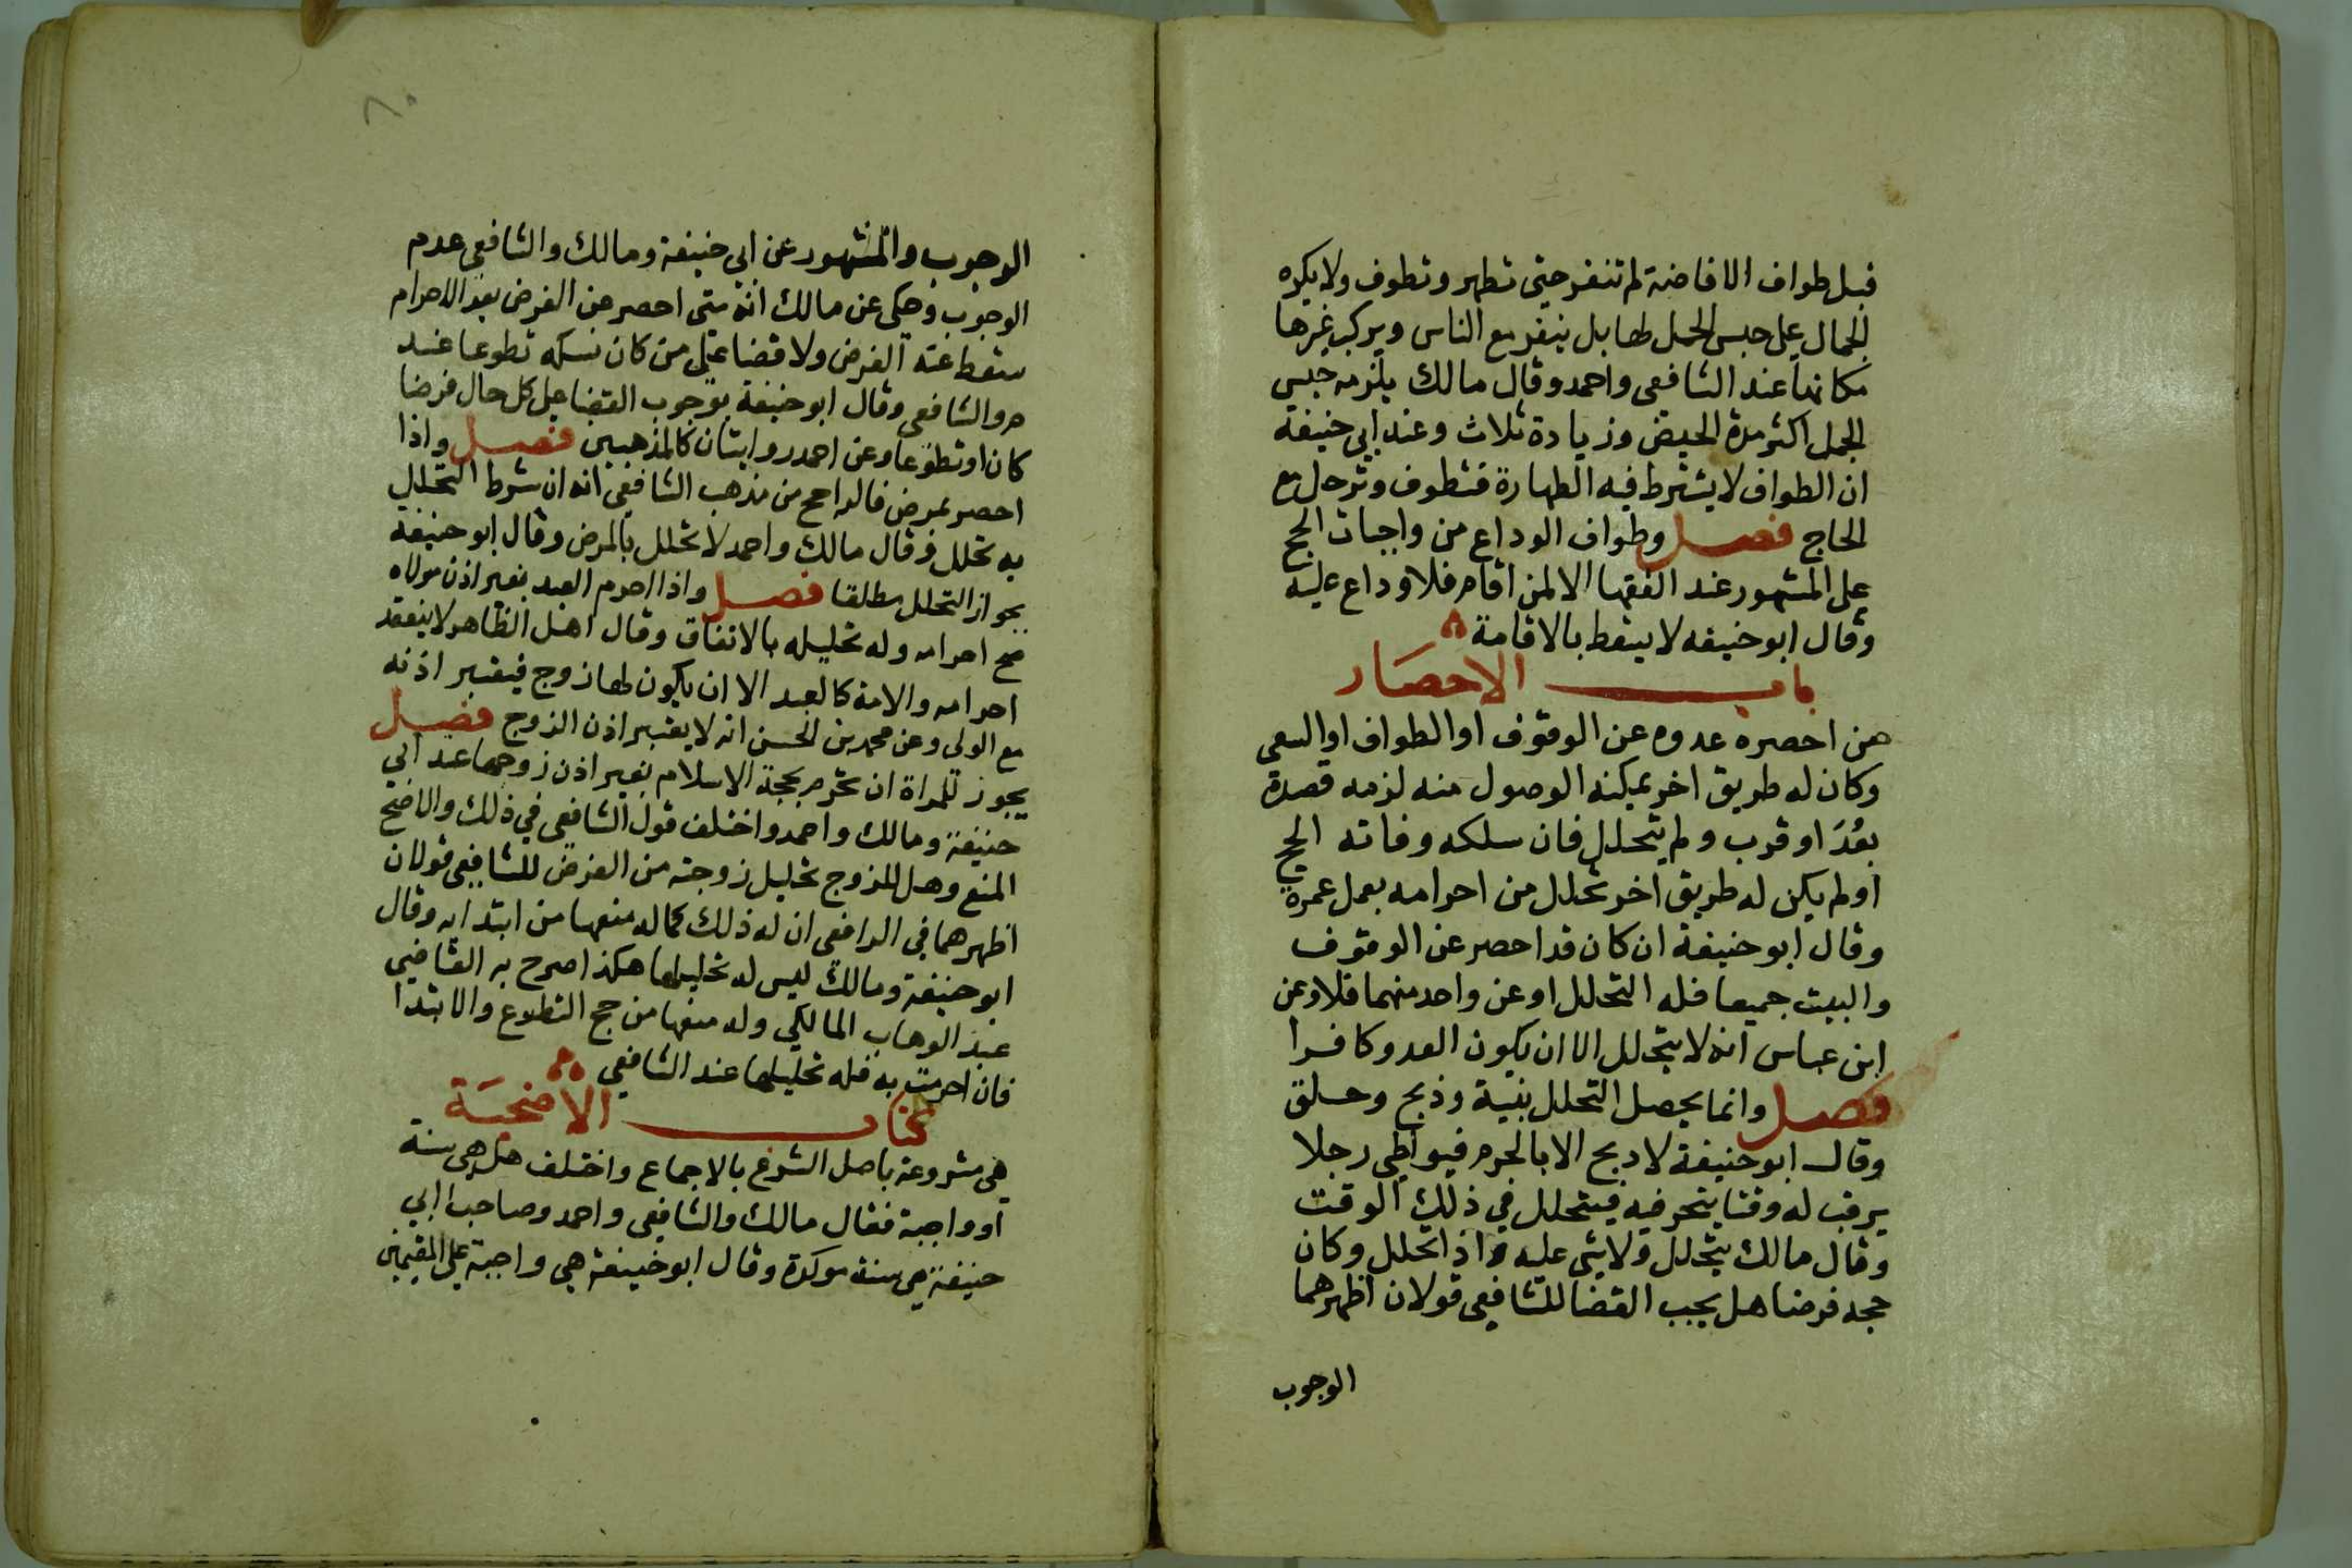 قبل طواف الافاضة لم تنفر حتى تطهر وتطوف ولا يكره
للجمال على حبس الجمل لها بل ينفر مع الناس ويركب غيرها
مكانها عند الشافعى واحمد وقال مالك يلزمه حبس
الجمل اكثر مدة الحيض وزيادة ثلاث وعند ابى حنيفة
ان الطواف لا يشترط فيه الطهارة فتطوف وترحل مع
الحاج فصل وطواف الوداع من واجبات الحج
على المشهور عند الفقها الا لمن اقام فلا وداع عليه
وقال ابو حنيفه لا يسقط بالاقامة
باب الاحصار
من احصره عدوه عن الوقوف او الطواف او السعى
وكان له طريق اخر يمكنه الوصول منه لزمه قصده
بعُدَ او قرب ولم يتحلل فان سلكه وفاته الحج
او لم يكن له طريق اخر تحلل من احرامه بعمل عمرة
وقال ابو حنيفة ان كان قد احصر عن الوقوف
والبيت جميعا فله التحلل او عن واحد منهما فلا وعن
ابن عباس انه لا يتحلل الا ان يكون العدو كافرا
فصل وانما يحصل التحلل بنية وذبح وحلق
وقال ابو حنيفة لا دبح الا بالحرم فيواطى رجلا
يرقب له وقتا ينحر فيه فيتحلل في ذلك الوقت
وقال مالك يتحلل ولا شى عليه واذا تحلل وكان
حجه فرضا هل يجب القضا للشافعى قولان اظهرهما
الوجوب
٨٠
الوجوب والمشهور عن ابي حنيفة ومالك والشافعى عدم
الوجوب وحكى عن مالك انه متى احصر عن الفرض بعد الاحرام
سقط عنه الفرض ولا قضا على من كان نسكه تطوعا عند
م والشافعى وقال ابو حنيفة بوجوب القضا بكل حال فرضا
كان او تطوعا وعن احمد روايتان كالمذهبين فصل واذا
احصر بمرض فالراجح من مذهب الشافعى انه ان شرط التحلل
به تحلل وقال مالك واحمد لا تحلل بالمرض وقال ابو حنيفة
بجواز التحلل مطلقا فصل واذا احرم العبد بغير اذن مولاه
صح احرامه وله تحليله بالاتفاق وقال اهل الظاهر لا ينعقد
احرامه والامة كالعبد الا ان يكون لها زوج فيعتبر اذنه
مع الولى وعن محمد بن الحسن انه لا يعتبر اذن الزوج فصل
يجوز للمراة ان تحرم بحجة الاسلام بغير اذن زوجها عند ابي
حنيفة ومالك واحمد واختلف قول الشافعى في ذلك والاصح
المنع وهل للزوج تحليل زوجته من الفرض للشافعى قولان
اظهرهما في الرافعى ان له ذلك كما له منعها من ابتدايه وقال
ابو حنيفة ومالك ليس له تحليلها هكذا صرح به القاضي
عبد الوهاب المالكي وله منعها من حج التطوع والابتدا
فان احرمت به فله تحليلها عند الشافعي
كتاب الاضحية
هى مشروعة باصل الشرع بالاجماع واختلف هل هى سنة
او واجبة فقال مالك والشافعى واحمد وصاحبا ابي
حنيفة هى سنة موكدة وقال ابو حنيفة هي واجبة على المقيمين